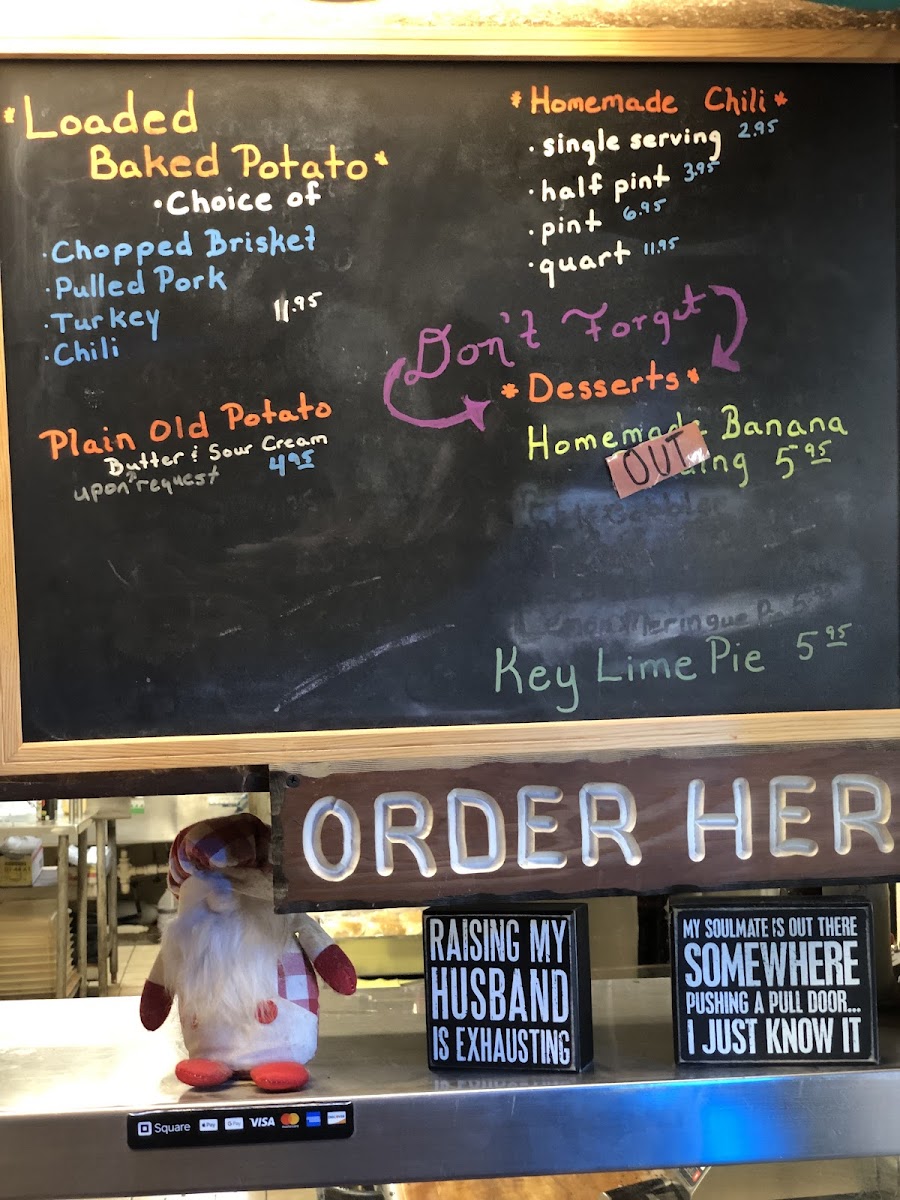 *Loaded
Baked Potato*
• Choice of
• Chopped Brisket
• Pulled Pork
• Turkey 11.95
• Chili
Plain Old Potato
Butter & Sour Cream 4.95
upon request
*Homemade Chili*
• single serving 2.95
• half pint 3.95
• pint 6.95
• quart 11.95
Don't Forget
*Desserts*
Homemade Banana
OUT
5.95
Lemon Meringue Pie 5.95
Key Lime Pie 5.95
ORDER HER
RAISING MY
HUSBAND
IS EXHAUSTING
MY SOULMATE IS OUT THERE
SOMEWHERE
PUSHING A PULL DOOR...
I JUST KNOW IT
Square Pay G Pay VISA